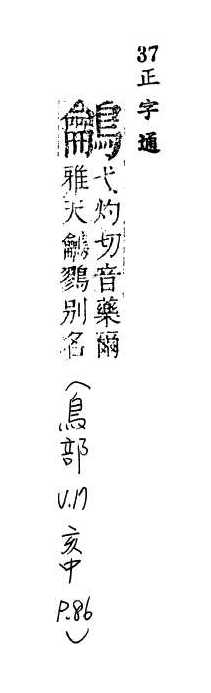 37 正字通
鸙
弋灼切音藥爾
雅天鸙鷚別名
(鳥部 V.17 亥中 P.86)